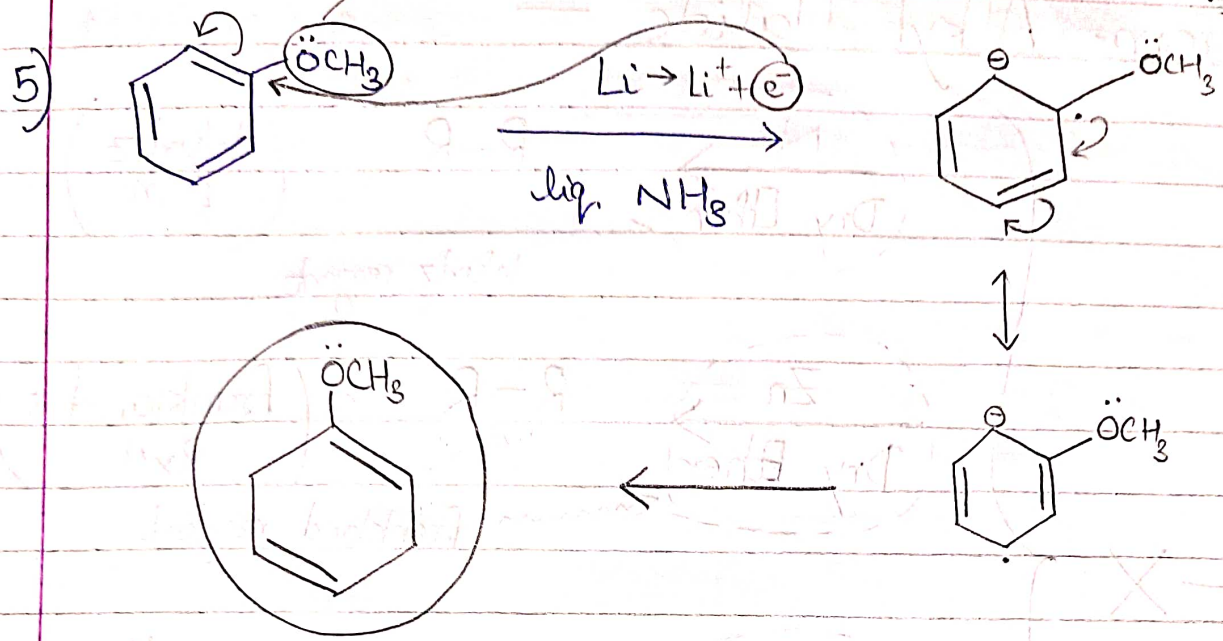 5)
ÖCH3
Li → Li+ + e-
liq. NH3
⊖
ÖCH3
ÖCH3
⊖
ÖCH3